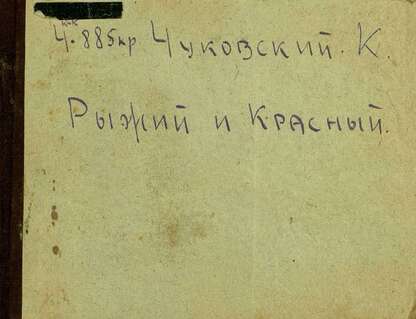 Ч. 885кр Чуковский. К.
Рыжий и Красный.